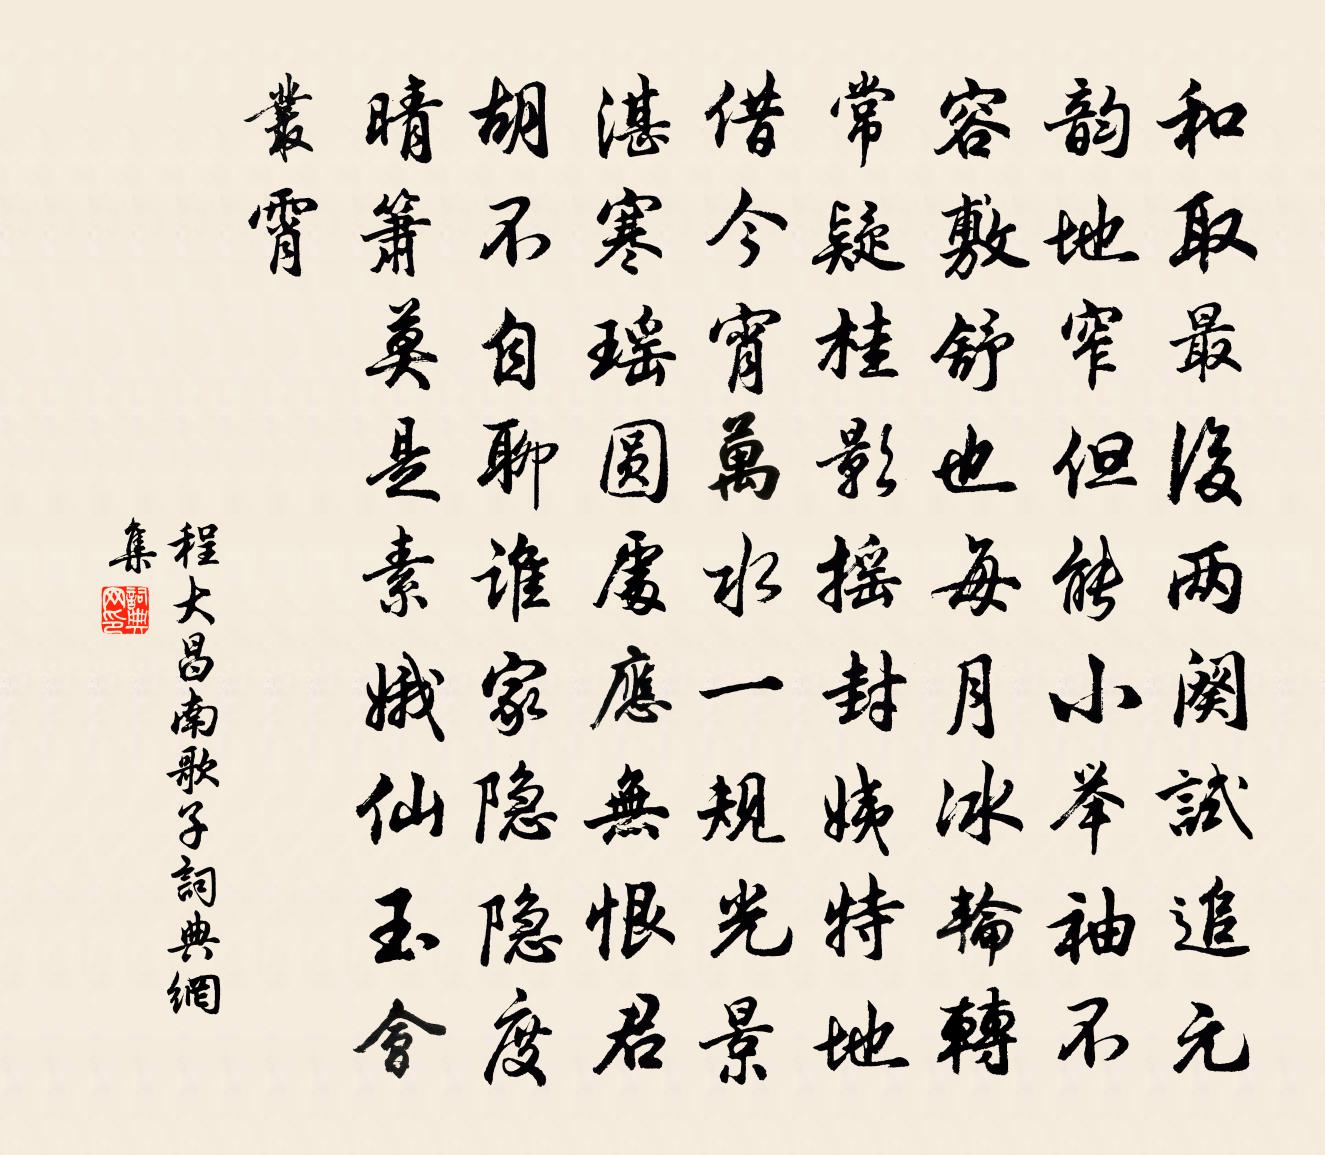 和取最後两阕試追元
韵地窄但能小举袖不
容敷舒也每月冰輪轉
常疑桂影摇封姨特地
借今宵萬水一規光景
湛寒瑶圆處應無恨君
胡不自聊誰家隐隐度
晴箫莫是素娥仙玉會
叢霄
程大昌南歌子詞典網
集
詞典网印